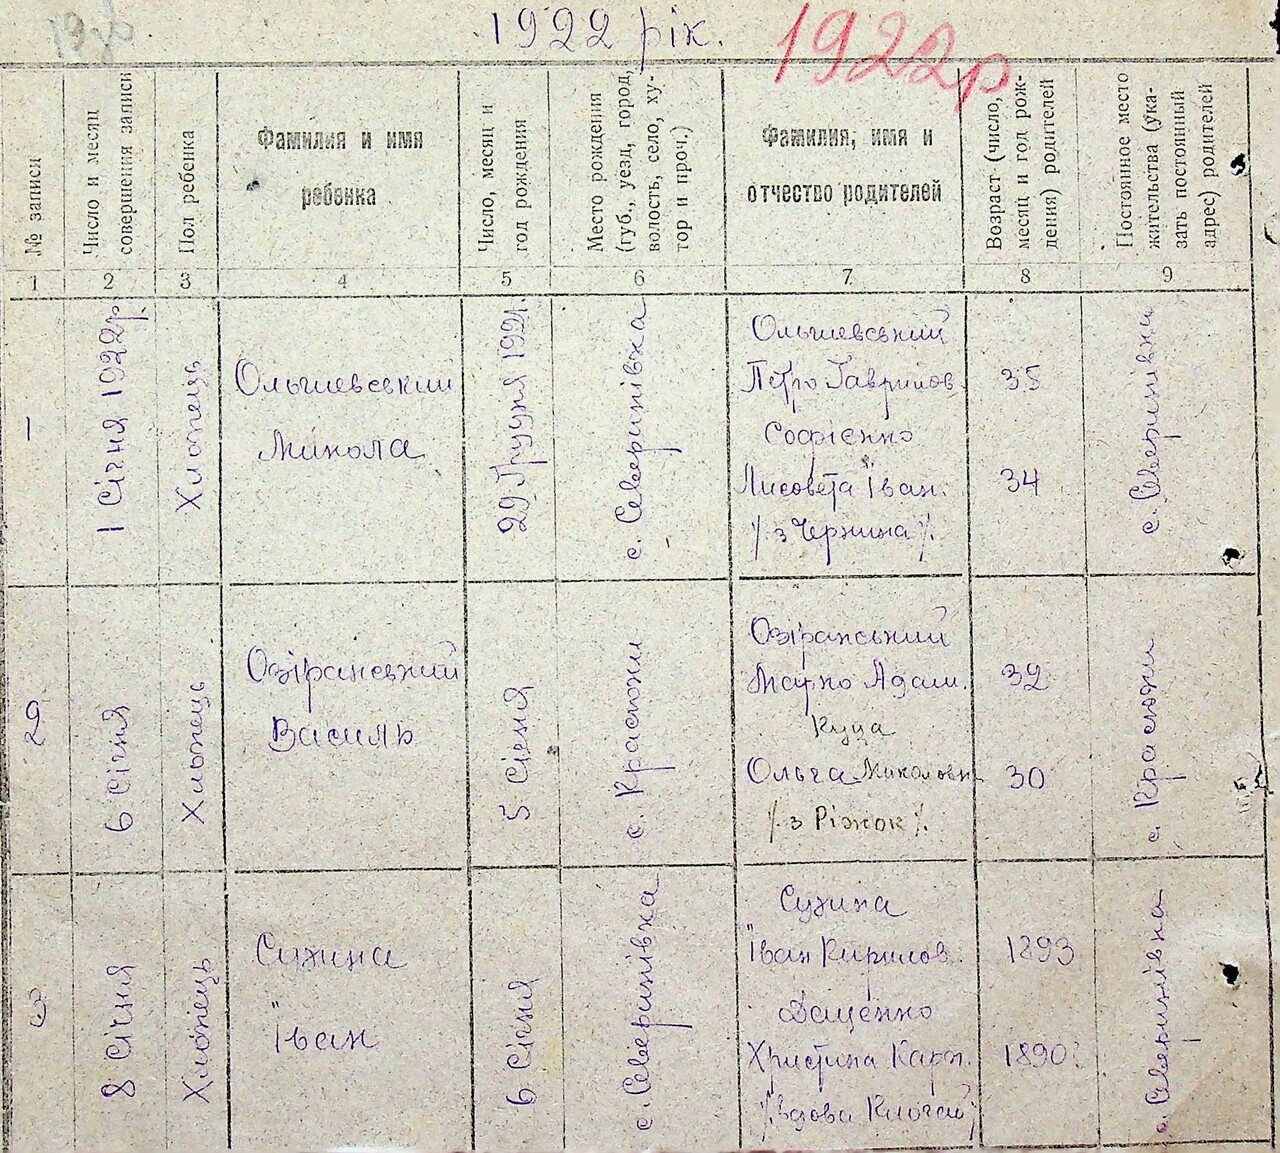 1922 рік.
1922р
№ записи
Число и месяц
совершения записи
Пол ребенка
Фамилия и имя
ребенка
Число, месяц и
год рождения
Место рождения
(губ., уезд, город,
волость, село, ху-
тор и проч.)
Фамилия, имя и
отчество родителей
Возраст (число,
месяц и год рож-
дения) родителей
Постоянное место
жительства (ука-
зать постоянный
адрес) родителей
1 2 3 4 5 6 7 8 9
1
1 Січня 1922р.
Хлопець
Ольшевський
Микола
29 Грудня 1921.
с. Северинівка
Ольшевський
Петро Гаврилов.
Софієнко
Лисовета Іван.
/. з Чернина /.
35
34
с. Северинівки
2
6 Січня
Хлопець
Озіранський
Василь
5 Січня
с. Краснюки
Озіранський
Марко Адам.
Куца
Ольга Миколовн
/. з Ріжок /.
32
30
с. Краснюки
3
8 Січня
Хлопець
Сухина
Іван
6 Січня
с. Северинівка
Сухина
Іван Кирилов.
Ващенко
Христина Карп.
/. вдова
1893
1890
с. Северинівка